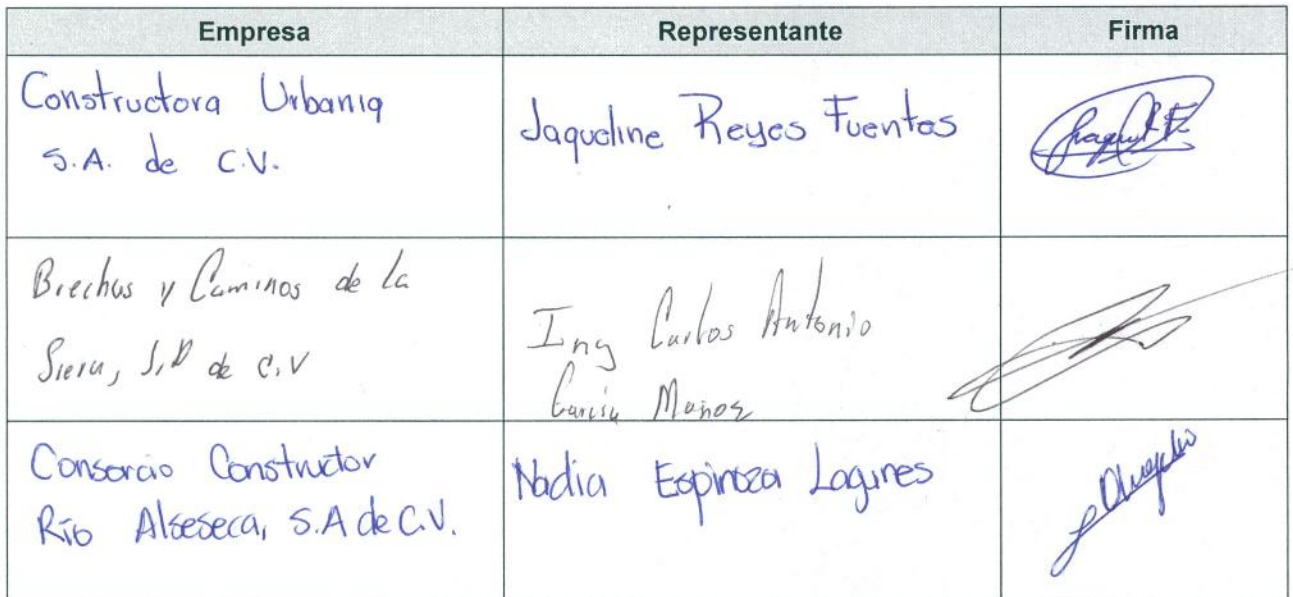 Empresa Representante Firma
Constructora Urbaniq
S.A. de C.V.
Jaqueline Reyes Fuentes
Brechas y Caminos de la
Sierra, S.A de C.V
Ing Carlos Antonio
García Muñoz
Consorcio Constructor
Río Alseseca, S.A de C.V.
Nadia Espinoza Lagunes